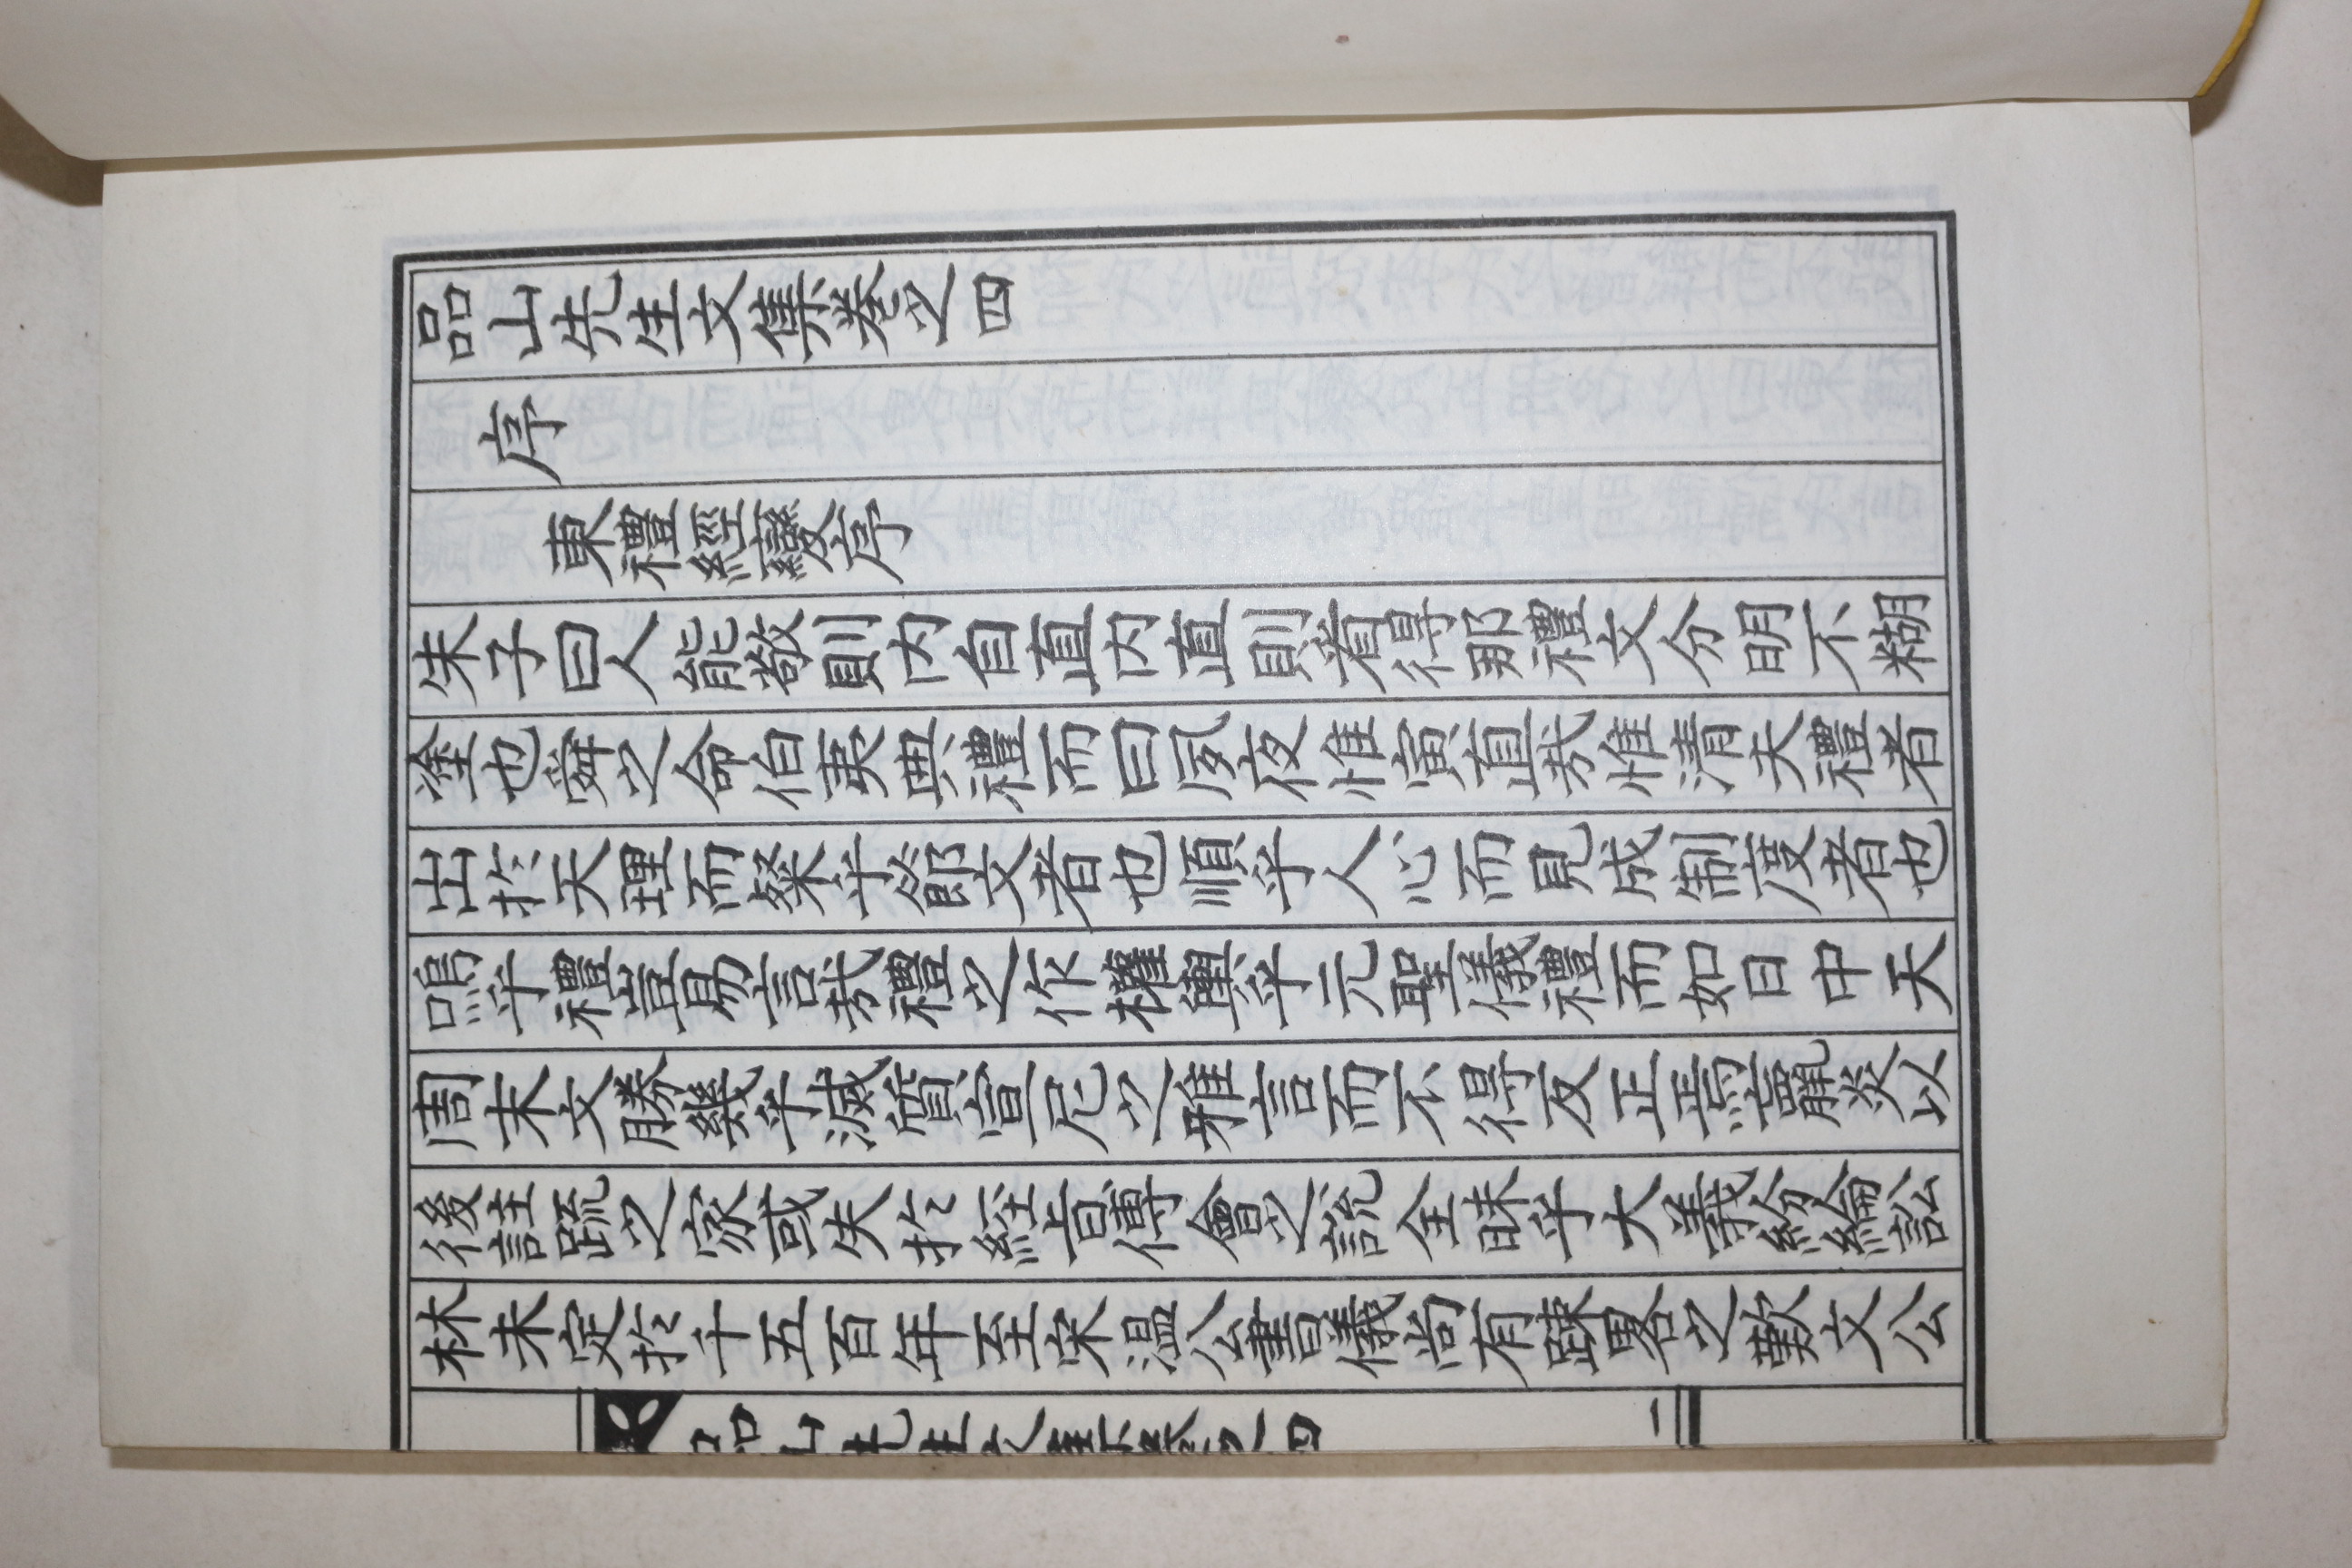 品山先生文集卷之四
序
東禮經變序
朱子曰人能敬則內自直內直則看得那禮文分明不糊
塗也舜之命伯夷典禮而曰夙夜惟寅直哉惟清夫禮者
出於天理而粲乎節文者也順乎人心而見成制度者也
嗚乎禮豈易言哉禮之作權輿乎元聖儀禮而如日中天
周末文勝幾乎滅質宣尼之雅言而不得反正焉竊覵炎以
後註疏之家或失於經旨傅會之說全昧乎大義紛綸訟
林未定於千五百年至宋溫公書儀尚有踈畧之歎文公
品山先生文集卷之四 一